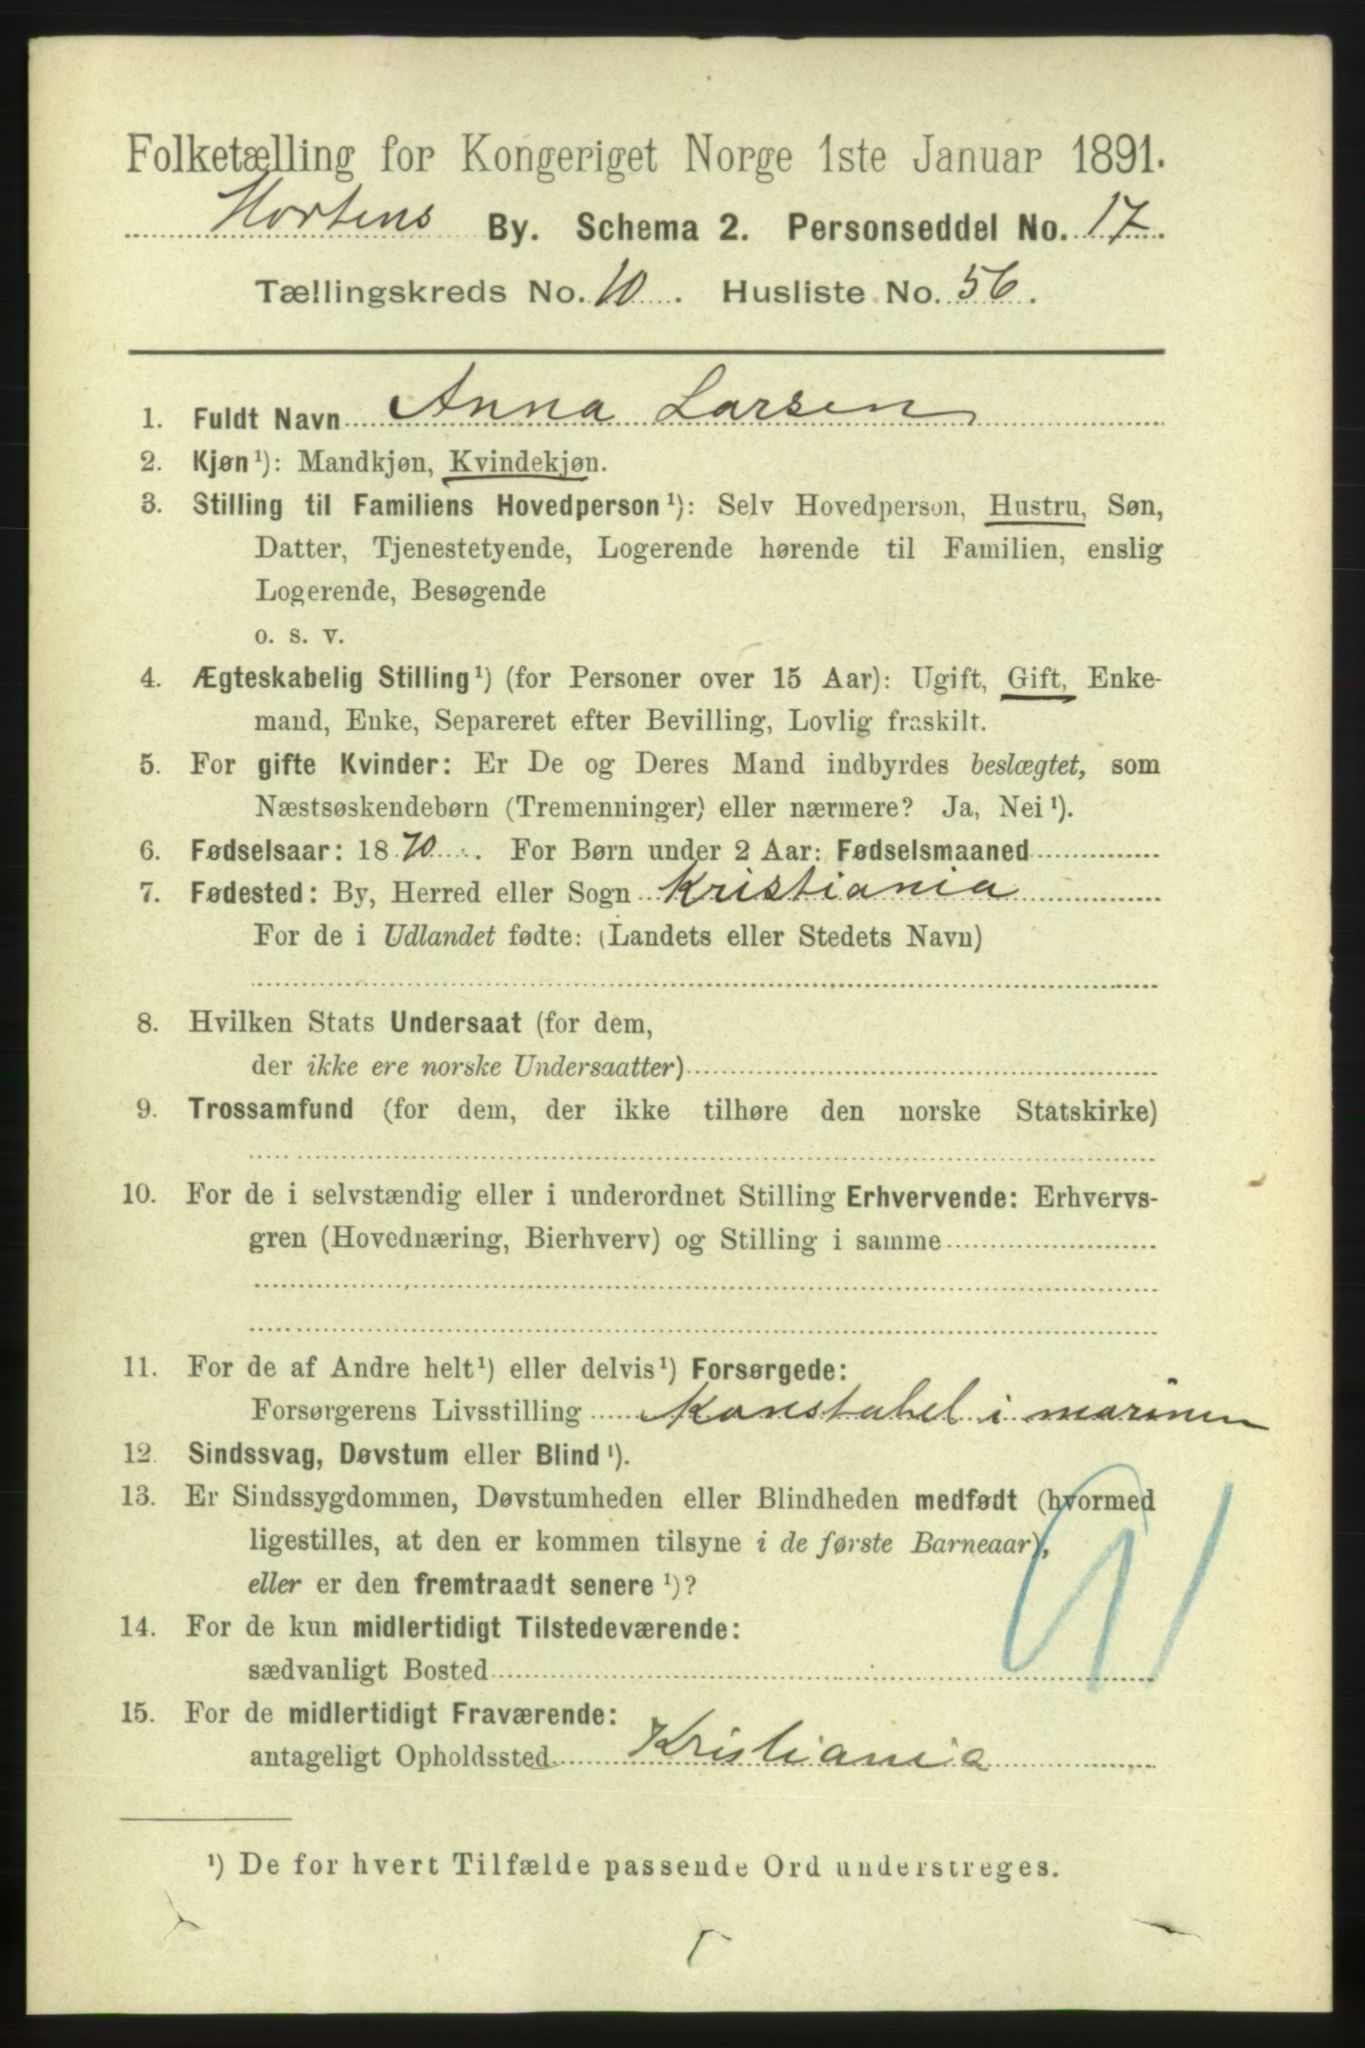 Folketælling for Kongeriget Norge 1ste Januar 1891.
Hortens By. Schema 2. Personseddel No. 17.
Tællingskreds No. 10. Husliste No. 56.
1. Fuldt Navn Anna Larsen
2. Kjøn¹): Mandkjøn, Kvindekjøn.
3. Stilling til Familiens Hovedperson¹): Selv Hovedperson, Hustru, Søn,
Datter, Tjenestetyende, Logerende hørende til Familien, enslig
Logerende, Besøgende
o. s. v.
4. Ægteskabelig Stilling¹) (for Personer over 15 Aar): Ugift, Gift, Enke-
mand, Enke, Separeret efter Bevilling, Lovlig fraskilt.
5. For gifte Kvinder: Er De og Deres Mand indbyrdes beslægtet, som
Næstsøskendebørn (Tremenninger) eller nærmere? Ja, Nei¹).
6. Fødselsaar: 1870. For Børn under 2 Aar: Fødselsmaaned
7. Fødested: By, Herred eller Sogn Kristiania
For de i Udlandet fødte: (Landets eller Stedets Navn)
8. Hvilken Stats Undersaat (for dem,
der ikke ere norske Undersaatter)
9. Trossamfund (for dem, der ikke tilhøre den norske Statskirke)
10. For de i selvstændig eller i underordnet Stilling Erhvervende: Erhvervs-
gren (Hovednæring, Bierhverv) og Stilling i samme
11. For de af Andre helt¹) eller delvis¹) Forsørgede:
Forsørgerens Livsstilling Konstabel i marinen
12. Sindssvag, Døvstum eller Blind¹).
13. Er Sindssygdommen, Døvstumheden eller Blindheden medfødt (hvormed
ligestilles, at den er kommen tilsyne i de første Barneaar),
eller er den fremtraadt senere¹)?
14. For de kun midlertidigt Tilstedeværende:
sædvanligt Bosted
15. For de midlertidigt Fraværende:
antageligt Opholdssted Kristiania
¹) De for hvert Tilfælde passende Ord understreges.